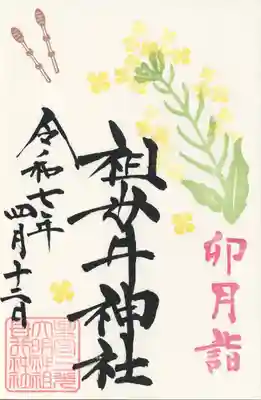 卯月詣
祖母井神社
令和七年
四月十二日